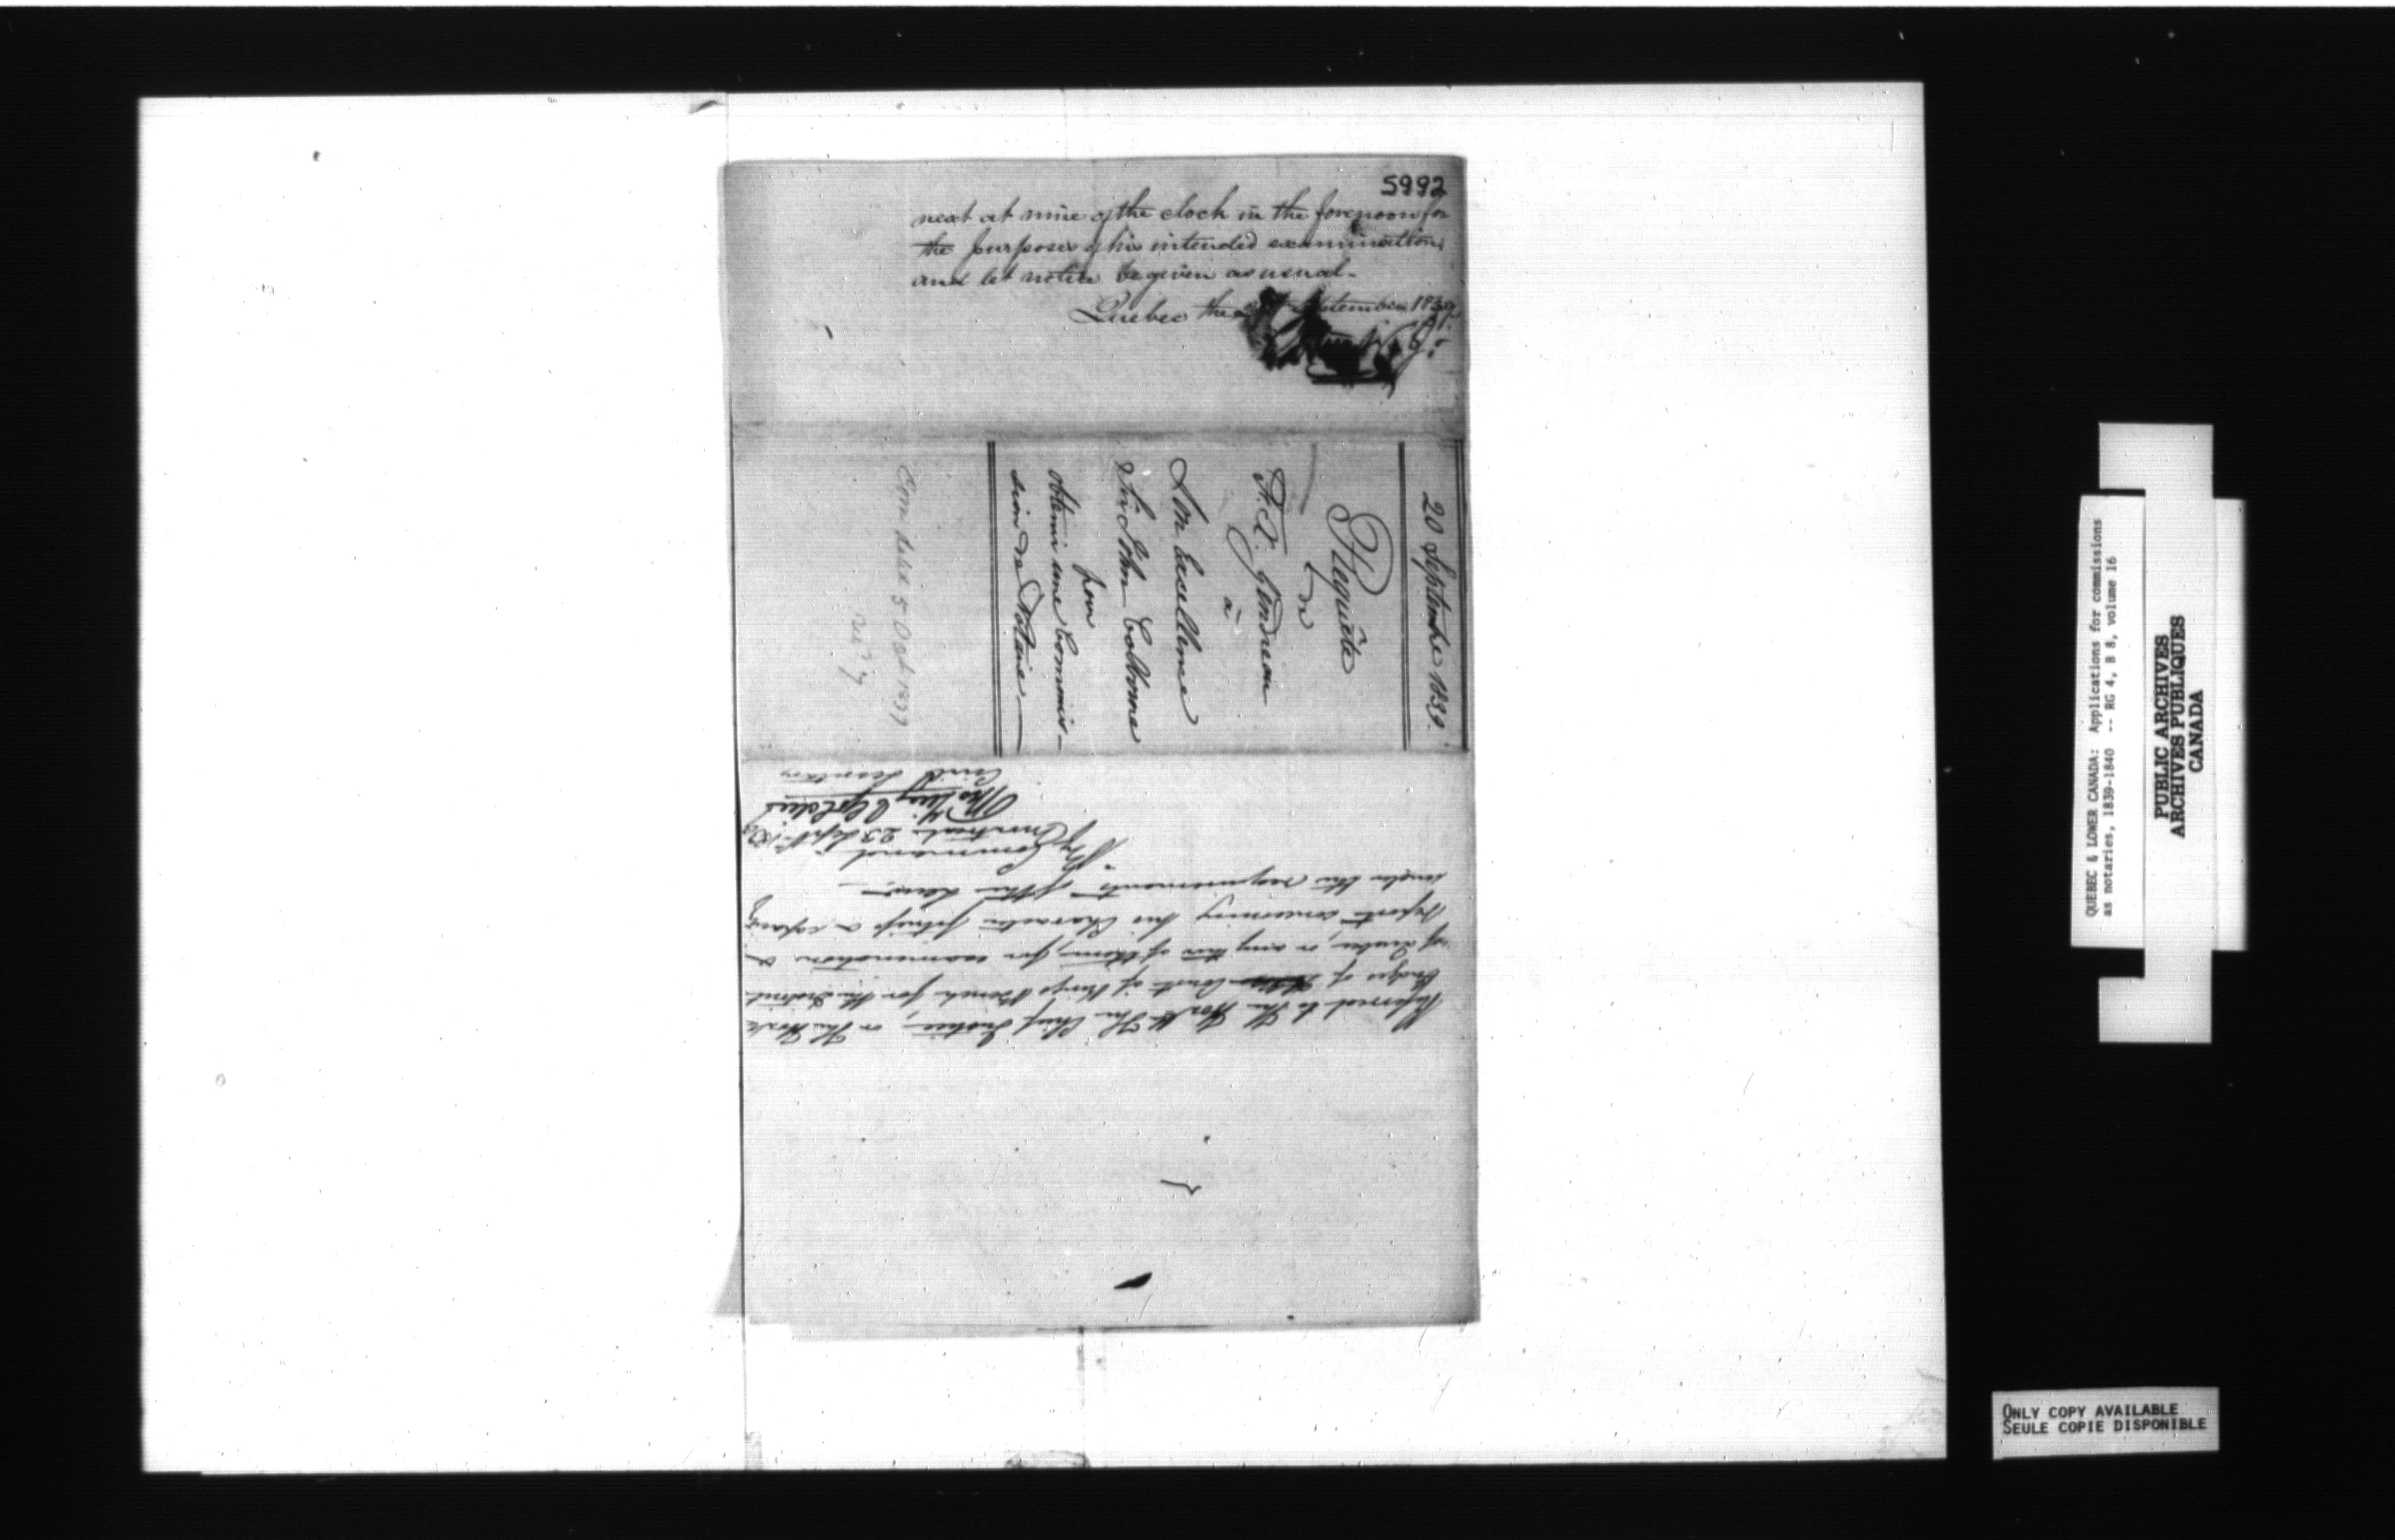 5992
next at nine of the clock in the forenoon for
the purposes of his intended examination,
and let notice be given as usual.
Quebec the September 1839.
20 Septembre 1839.
Requête
de
F. X. Gendreau
à
Son Excellence
Sir John Colborne
pour
obtenir une Commis-
sion de Notaire.
Com dated 5 Oct 1839
Referred to the Honble The Chief Justice, or The Honble
Judges of Court of Kings Bench for the District
of Quebec, or any two of them, for examination &
report concerning his Character fitness & capacity
under the requirements of the Law.
By Command
Montreal 23 Sept 1839
Civil Secretary
QUEBEC & LOWER CANADA: Applications for commissions
as notaries, 1839-1840 -- RG 4, B 8, volume 16
PUBLIC ARCHIVES
ARCHIVES PUBLIQUES
CANADA
ONLY COPY AVAILABLE
SEULE COPIE DISPONIBLE